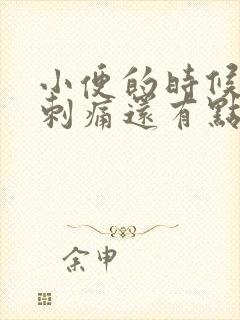 小便的時候
刺痛還有點
余申